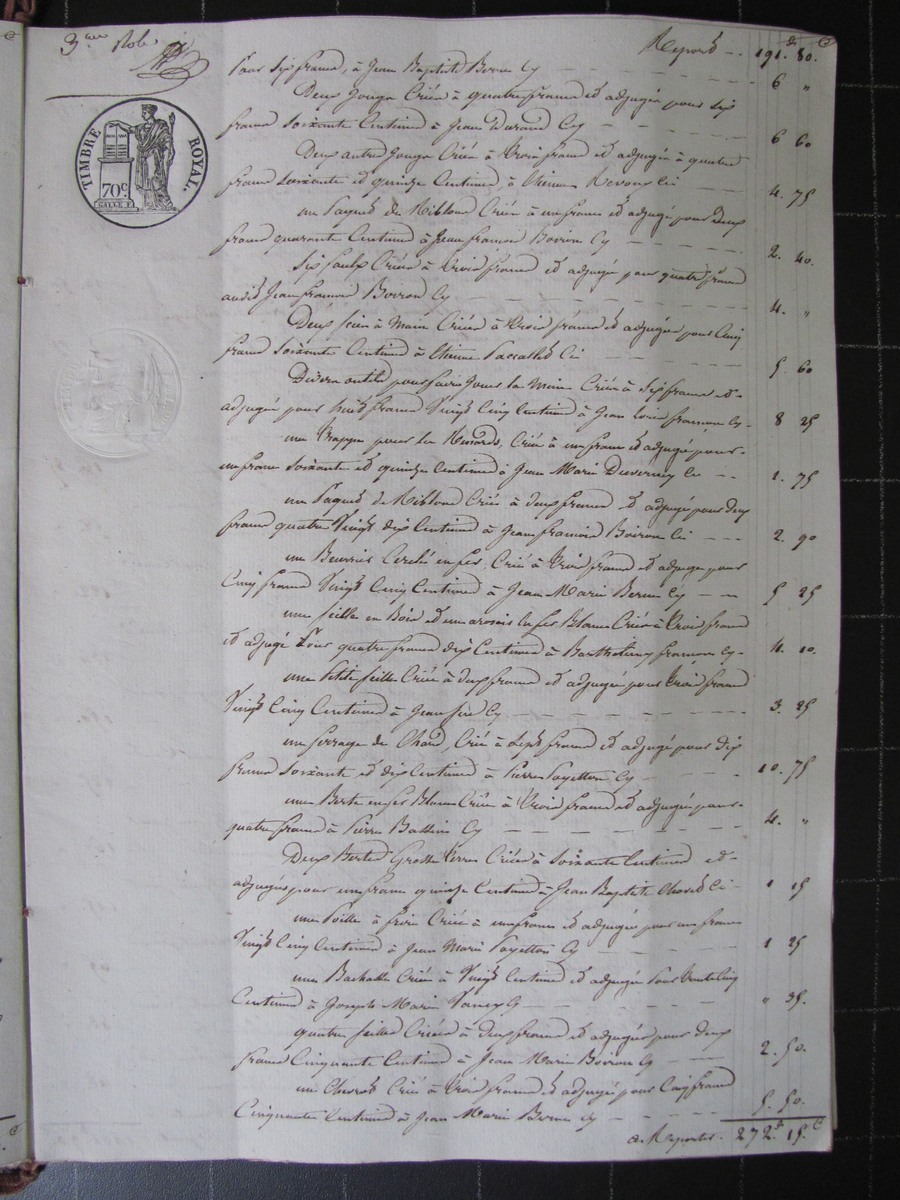 3eme Role
Report - 191. 80.
TIMBRE ROYAL.
70c.
pour six francs, à Jean Baptiste Berne Cy 6 "
Deux Gouges Criées à quatre francs et adjugées pour six
francs soixante Centimes à Jean Durand Cy 6 60
Deux autres Gouges Criées à trois francs et adjugées à quatre
francs soixante et quinze Centimes, à Etienne Revoux Ci 4. 75
un Paquet de Riblons Criée à un franc et adjugé pour Deux
francs quarante Centimes à Jean françois Boiron Cy 2. 40.
Six faulx Criées à trois francs et adjugées pour quatre francs
audit Jean francois Boiron Cy 4. "
Deux scies à Main Criées à trois francs et adjugées pour Cinq
francs soixante Centimes à Etienne Paccallet Ci 5. 60
Divers outils pour faire Jouer la Mine Criés à six francs et
adjugés pour huit francs Vingt Cinq Centimes à Jean Louis françon Cy 8 25
une trappe pour les Renards, Criée à un franc et adjugé pour
un franc soixante et quinze Centimes à Jean Marie Duvernay Ci 1. 75
un Paquet de Riblons Criés à deux francs et adjugé pour deux
francs quatre Vingt dix Centimes à Jean francois Boiron Ci 2. 90
une Beurrière Cerclée en fer, Criée à trois francs et adjugée pour
Cinq francs Vingt Cinq Centimes à Jean Marie Berne Cy 5 25
une seille en Bois et un arrosoir en fer Blanc Criés à trois francs
et adjugé Pour quatre francs dix Centimes à Barthelemy françon Cy 4. 10.
une Petite seille Criée à deux francs et adjugée pour trois francs
Vingt Cinq Centimes à Jean Cy 3. 25
un ferrage de Chars, Criée à sept francs et adjugé pour dix
francs soixante et dix Centimes à Pierre Payetton Cy 10. 75
une Berte en fer Blanc Criée à trois francs et adjugée pour
quatre francs à Pierre Cy 4. "
Deux Bertes Grosse terre Criées à Soixante Centimes et
adjugées pour un franc quinze Centimes à Jean Baptiste Chorel Ci 1 15
une Poille à frire Criée à un franc et adjugée pour un franc
Vingt Cinq Centimes à Jean Marie Payetton Cy 1 25
une Bachasse Criée à Vingt Centimes et adjugée Pour trente Cinq
Centimes à Joseph Marie Cy " 35.
quatre seilles Criées à deux francs et adjugées pour deux
francs Cinquante Centimes à Jean Marie Boiron Cy 2. 50.
un Criée à trois francs et adjugé pour Cinq francs
Cinquante Centimes à Jean Marie Berne Cy 5. 50.
a Reporter. 272f. 15.c